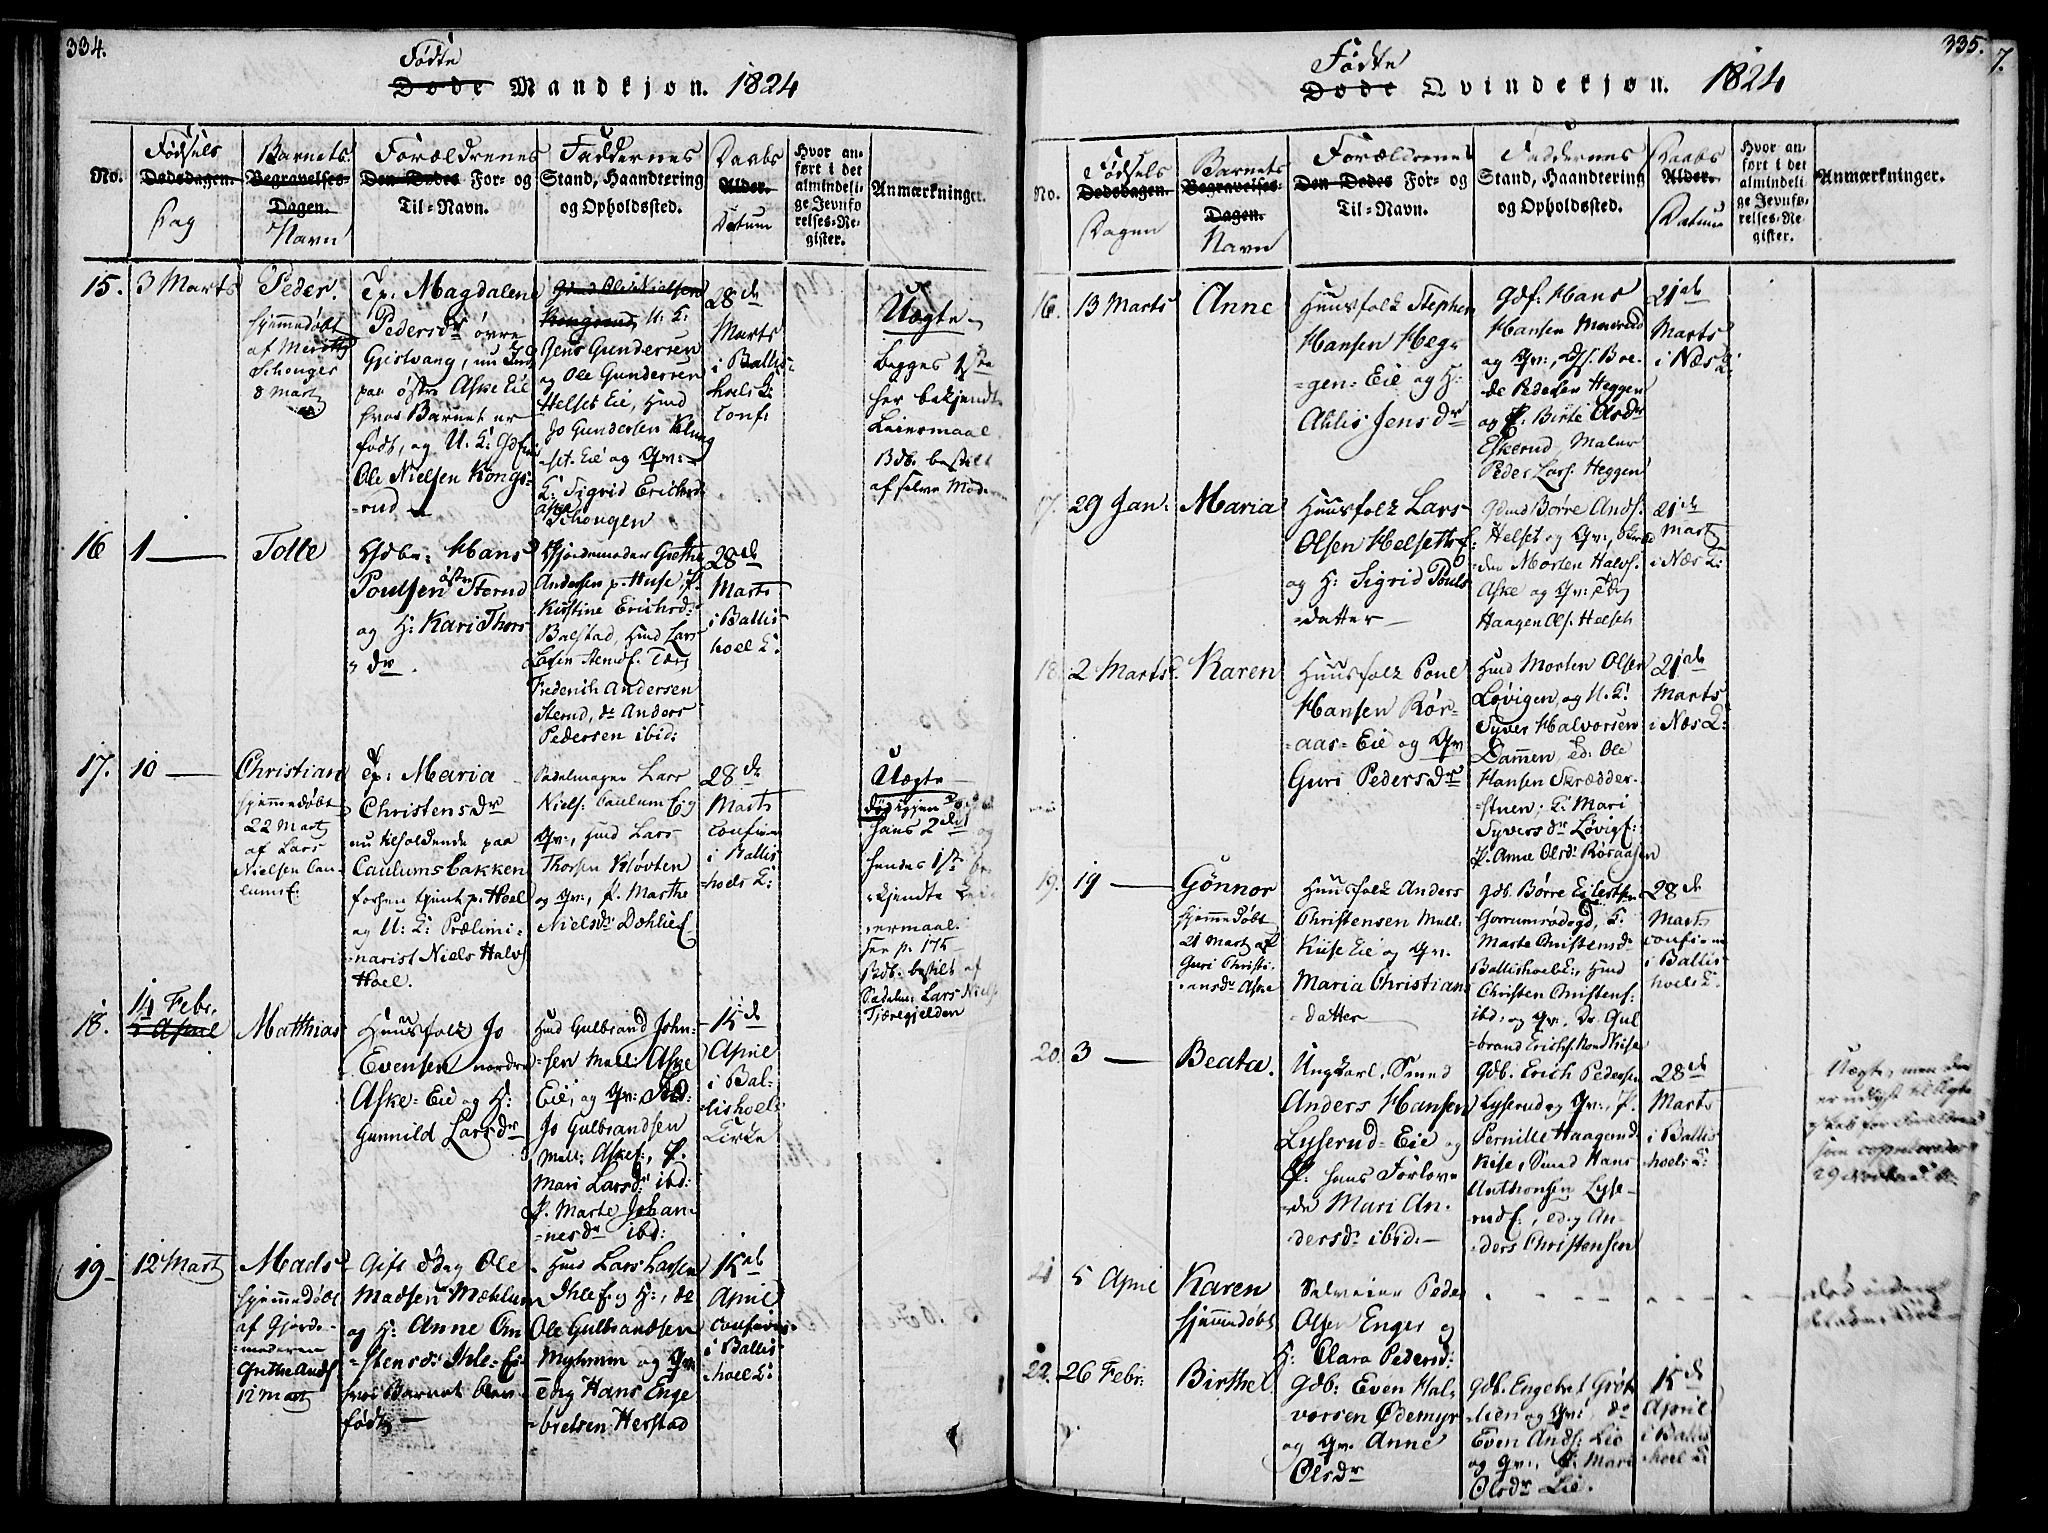 334.
Fødte
Døde Mandkjøn. 1824
No.
Fødsels
Dødsdagen.
Dag
Barnets
Begravelses-
Dagen.
Navn
Forældrenes
Den Dødes For- og
Til-Navn.
Faddernes
Stand, Haandtering
og Opholdssted.
Daabs
Alder.
Datum
Hvor an-
ført i det
almindeli-
ge Jevnfø-
relses-Re-
gister.
Anmærkninger.
15.
3 Marts
Peder.
hjemmedøbt
af
Schonger
8 Marts
Tp: Magdalene
Pedersdr øvre
Gjelvang, nu
paa østre Aske Eie
hvor Barnet er
født, og U. K:
Ole Nielsen Kongs-
=rud
Gmd Ole Nielsen
Kongsrud, U. K:
Jens Gundersen
og Ole Gundersen
Helset Eie, Hmd
Jo Gundersen Klung
=set. Eie og Qv:
K: Sigrid Erichsd:
Schongen
28de
Marts
i Ballis-
hoels K:
conf:
Uægte
begges 1ste
her bekjendte
Leiermaal.
Bdb. bestilt
af selve Moderen
16
1 —
Tolle
Gdbr: Hans
Poulsen østre Sterud
og H: Kari Thors
dr.
Gjordemoder Grethe
Andersen p. Huse, P.
Kirstine Erichsd:
Balstad, Hmd Lars
Frederich Andersen
Sterud, do Anders
Pedersen ibid:
28de
Marts
i Ballis-
hoel K:
17.
10 —
Christian
hjemmedøbt
22 Marts
af Lars
Nielsen Cau-
lumsE.
Tp: Maria
Christensdr
nu tilholdende paa
Caulumsbakken
forhen tjent p. Hoel
og U: K: Prælimi-
narist Niels Halvs
Hoel.
Sadelmager Lars
Niels: Caulum E. og
Qv:, Hmd Lars
Thorsen Kløvten
og Qv:, P. Marthe
Nielsdr DehlieE.
28de
Marts
confir:
i Ballis-
hoels K:
Uægte
hans 2det og
hendes 1ste be-
kjendte Lei-
ermaal.
see p. 175
Bdb: bestilt af
Sadelm: Lars Niels
Tjæregjelden
18.
14 Febr.
Matthias
Huusfolk Jo
Evensen nordre
Aske-Eie og H:
Gunnild Larsdr
Hmd Gulbrand John-
=sen Mell: Aske
Eie, og Qv:
Jo Gulbrandsen
Mell: AskeE:, P.
Mari Larsdr: ibd:
P. Marte Johan-
=nesdr ibd:
15de
April
i Bal-
lishoels
Kirke
19
12 Marts
Mads
hjemmedøbt
af Gjorde-
moderen
Grethe Ands
12 Marts
Gift Ole
Madsen Mæhlum
og H: Anne Om
=stensdr Ihle-Ei
hvor Barnet blev
født
Hmd Lars Larsen
IhleE. og H:, do
Ole Gulbrandsen
Myhrum og Qv:
Hans Enge
brelsen Herstad
15de
April
confirm:
i Ballis
hoel K:
335.
7.
Fødte
Døde Qvindekjøn. 1824
No.
Fødsels
Dødsdagen.
Dagen
Barnets
Begravelses-
Dagen.
Navn
Forældrenes
Den Dødes For- og
Til-Navn.
Faddernes
Stand, Haandtering
og Opholdssted.
Daabs
Alder.
Datum
Hvor an-
ført i det
almindeli-
ge Jevnfø-
relses-Re-
gister.
Anmærkninger.
16.
13 Marts
Anne
Huusfolk Stephen
Hansen Heg-
=gen-Eie og H:
Ahlis Jensdr
Gdf: Hans
Hansen
og Qv:, Boe-
de Pedersen Heggen
og P. Birte Olsdr
Eskerud
Peder Lars. Heggen
21de
Marts
i Næs K:
17.
29 Jan.
Maria
Huusfolk Lars
Olsen HelsetE.
og H: Sigrid Pouls
=datter
Gmd Børre Ands.
Helset og Qv:,
Morten Halvs.
Aske og Qv:
Haagen Ols. Helset
21de
Marts
i Næs K:
18.
2 Marts
Karen
Huusfolk Poul
Hansen Rør-
=aas-Eie og Qv
Guri Pedersdr
Hmd Morten Olsen
Løvigen, og U. K:
Syver Halvorsen
Dammen Ole
Hansen Skrædder-
=stuen; K: Mari
Syversdr Løvigs:
P. Anne Olsdr Røraasen
21de
Marts
i Næs K:
19.
19 —
Gønnor
hjemmedøbt
21 Marts af
Guri Christi-
ansdr Aske
Huusfolk Anders
Christensen Mell:
Kiise Eie og Qv.
Maria Christians
datter
Gdb. Børre
K.
Marte Christensdr
BallishoelE:, Hmd
Christen Christens:
ibd: og Qv. Dr. Gul
=brand Erichs. Nord Kise
28de
Marts
confirm
i Ballis
hoels K:
20.
3 —
Beata.
Ungkarl, Smed
Anders Hansen
Lyserud-Eie og
P: hans Forlove
de Mari An-
dersdr ibid:
Gdb. Erich Pedersen
Lyserud og Qv:, P.
Pernille Haagensd
Kise, Smed Hans
Anthonsen Lyse-
rudE:, An-
ders Christensen
28de
Marts
i Ballis
hoels K:
Uægte, men
er
skab
som copuleredes
29
21
5 April
Karen
hjemmedøbt
Selveier Peder
Olsen Enger og
H: Clara Pedersd:
22.
26 Febr:
Birthe
Gdb: Even Hal-
vorsen Ødemyr
og Qv. Anne
Olsdr
Gdb. Engebret Grøt
lien og Qv:, do
Even Ands: Lie
og Qv:, P. Mari
Olsdr Lie.
15de
April
i Ballis
hoel K: